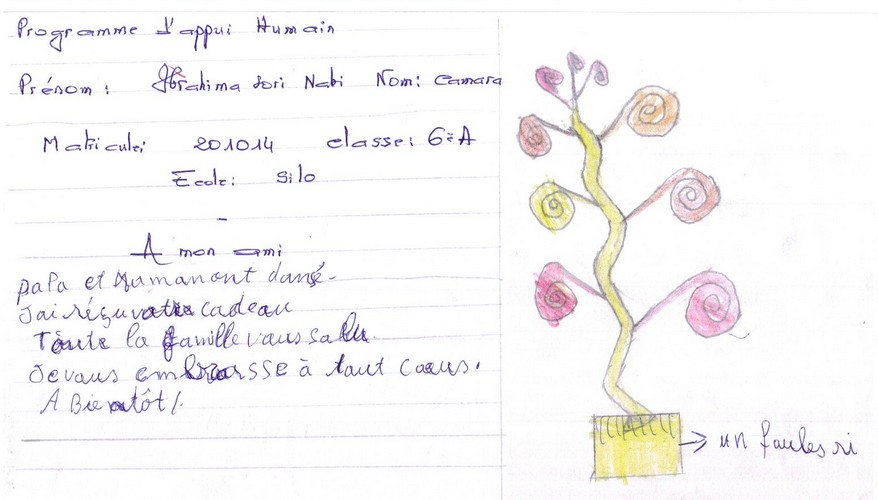 Programme d'appui Humain
Prénom : Ibrahima Sori Nabi Nom: Camara
Matricule: 201014 classe: 6è A
Ecole: Silo
A mon ami
papa et Maman ont dansé.
J'ai réçu votre cadeau
Toute la famille vous salu.
Je vous embrasse à tout coeus.
A Bientôt!
un